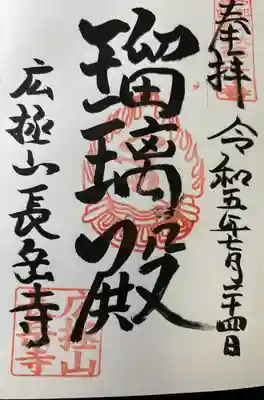 奉拝
令和五年七月二十四日
瑠璃殿
広拯山長岳寺
広拯山
長岳寺